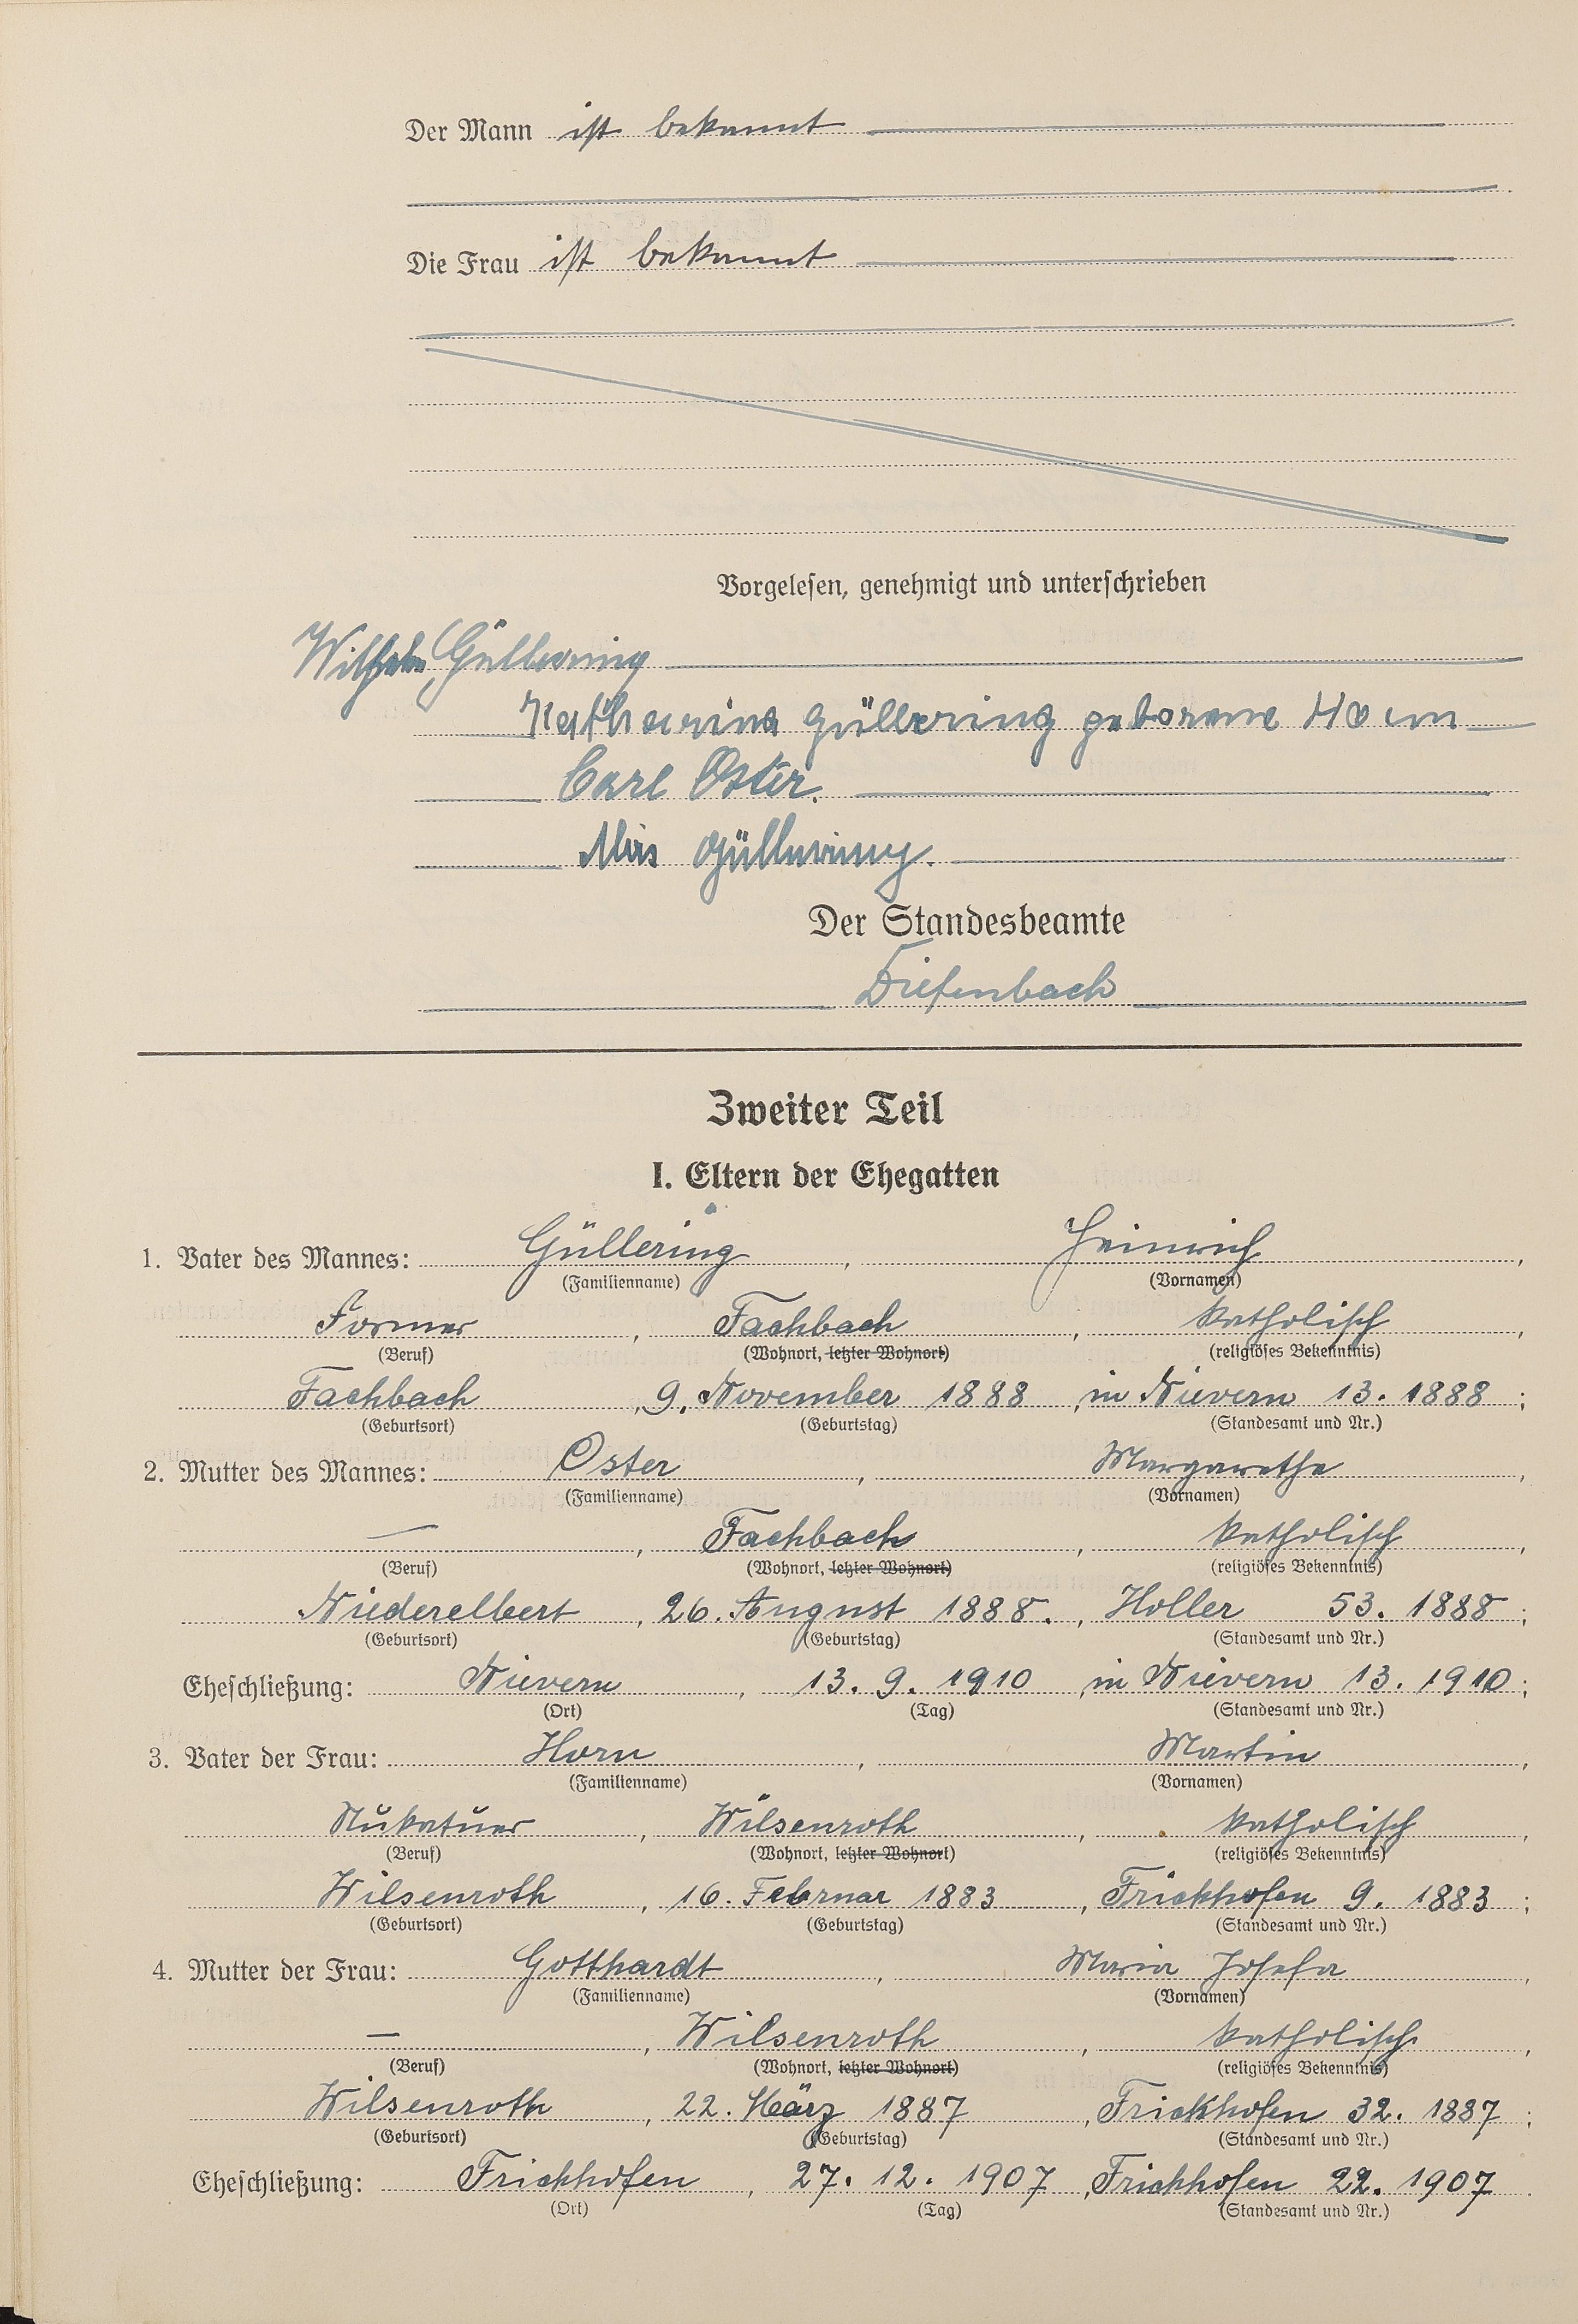 Der Mann ist bekannt
Die Frau ist bekannt
Vorgelesen, genehmigt und unterschrieben
Wilhelm Güllering
Katharina Güllering geborene Horn
Carl Oster.
Güllering.
Der Standesbeamte
Diefenbach
Zweiter Teil
I. Eltern der Ehegatten
1. Vater des Mannes: Güllering, Heinrich,
(Familienname) (Vornamen)
Former, Fachbach, katholisch,
(Beruf) (Wohnort, letzter Wohnort) (religiöses Bekenntnis)
Fachbach, 9. November 1888, in Nievern 13. 1888;
(Geburtsort) (Geburtstag) (Standesamt und Nr.)
2. Mutter des Mannes: Oster, Margarethe,
(Familienname) (Vornamen)
—, Fachbach, katholisch,
(Beruf) (Wohnort, letzter Wohnort) (religiöses Bekenntnis)
Niederelbert, 26. August 1888., Holler 53. 1888;
(Geburtsort) (Geburtstag) (Standesamt und Nr.)
Eheschließung: Nievern, 13. 9. 1910, in Nievern 13. 1910;
(Ort) (Tag) (Standesamt und Nr.)
3. Vater der Frau: Horn, Martin,
(Familienname) (Vornamen)
, Wilsenroth, katholisch,
(Beruf) (Wohnort, letzter Wohnort) (religiöses Bekenntnis)
Wilsenroth, 16. Februar 1883, Frickhofen 9. 1883;
(Geburtsort) (Geburtstag) (Standesamt und Nr.)
4. Mutter der Frau: Gotthardt, Maria Josefa,
(Familienname) (Vornamen)
—, Wilsenroth, katholisch,
(Beruf) (Wohnort, letzter Wohnort) (religiöses Bekenntnis)
Wilsenroth, 22. März 1887, Frickhofen 32. 1887;
(Geburtsort) (Geburtstag) (Standesamt und Nr.)
Eheschließung: Frickhofen, 27. 12. 1907, Frickhofen 22. 1907.
(Ort) (Tag) (Standesamt und Nr.)